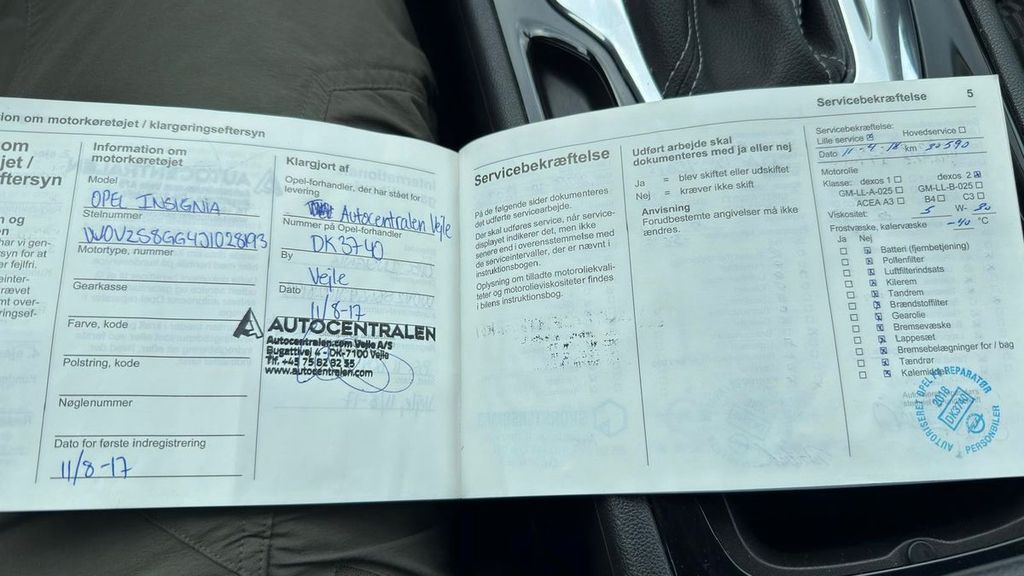 ion om motorkøretøjet / klargøringseftersyn
om
jet /
ftersyn
n og
har vi gen-
syn for at
er fejlfri.
einter-
krævet
mt over-
ringsef-
Information om
motorkøretøjet
Model
OPEL INSIGNIA
Stelnummer
Motortype, nummer
Gearkasse
Farve, kode
Polstring, kode
Nøglenummer
Dato for første indregistrering
11/8-17
Klargjort af
Opel-forhandler, der har stået for
levering
Autocentralen Vejle
Nummer på Opel-forhandler
DK3740
By
Vejle
Dato
11/8-17
AUTOCENTRALEN
Autocentralen.com Vejle A/S
Bugattivej 4 - DK-7100 Vejle
Tlf. +45 75 82 82 55
www.autocentralen.com
Servicebekræftelse 5
Servicebekræftelse
På de følgende sider dokumenteres
det udførte servicearbejde.
Der skal udføres service, når service-
displayet indikerer det, men ikke
senere end i overensstemmelse med
de serviceintervaller, der er nævnt i
instruktionsbogen.
Oplysning om tilladte motoroliekvali-
teter og motorolieviskositeter findes
i bilens instruktionsbog.
Udført arbejde skal
dokumenteres med ja eller nej
Ja = blev skiftet eller udskiftet
Nej = kræver ikke skift
Anvisning
Forudbestemte angivelser må ikke
ændres.
Servicebekræftelse:
Lille service ☒ Hovedservice ☐
Dato 11-4-18 km 30590
Motorolie
Klasse: dexos 1 ☐ dexos 2 ☒
GM-LL-A-025 ☐ GM-LL-B-025 ☐
ACEA A3 ☐ B4 ☐ C3 ☐
Viskositet: 5 W- 30
Frostvæske, kølervæske -40 °C
Ja Nej
☐ ☒ Batteri (fjernbetjening)
☐ ☒ Pollenfilter
☐ ☒ Luftfilterindsats
☐ ☒ Kilerem
☐ ☒ Tandrem
☐ ☒ Brændstoffilter
☐ ☒ Gearolie
☐ ☒ Bremsevæske
☐ ☒ Lappesæt
☐ ☒ Bremsebelægninger for / bag
☐ ☒ Tændrør
☐ ☒ Kølemiddel
AUTORISERET OPEL REPARATØR
2018
DK3740
PERSONBILER